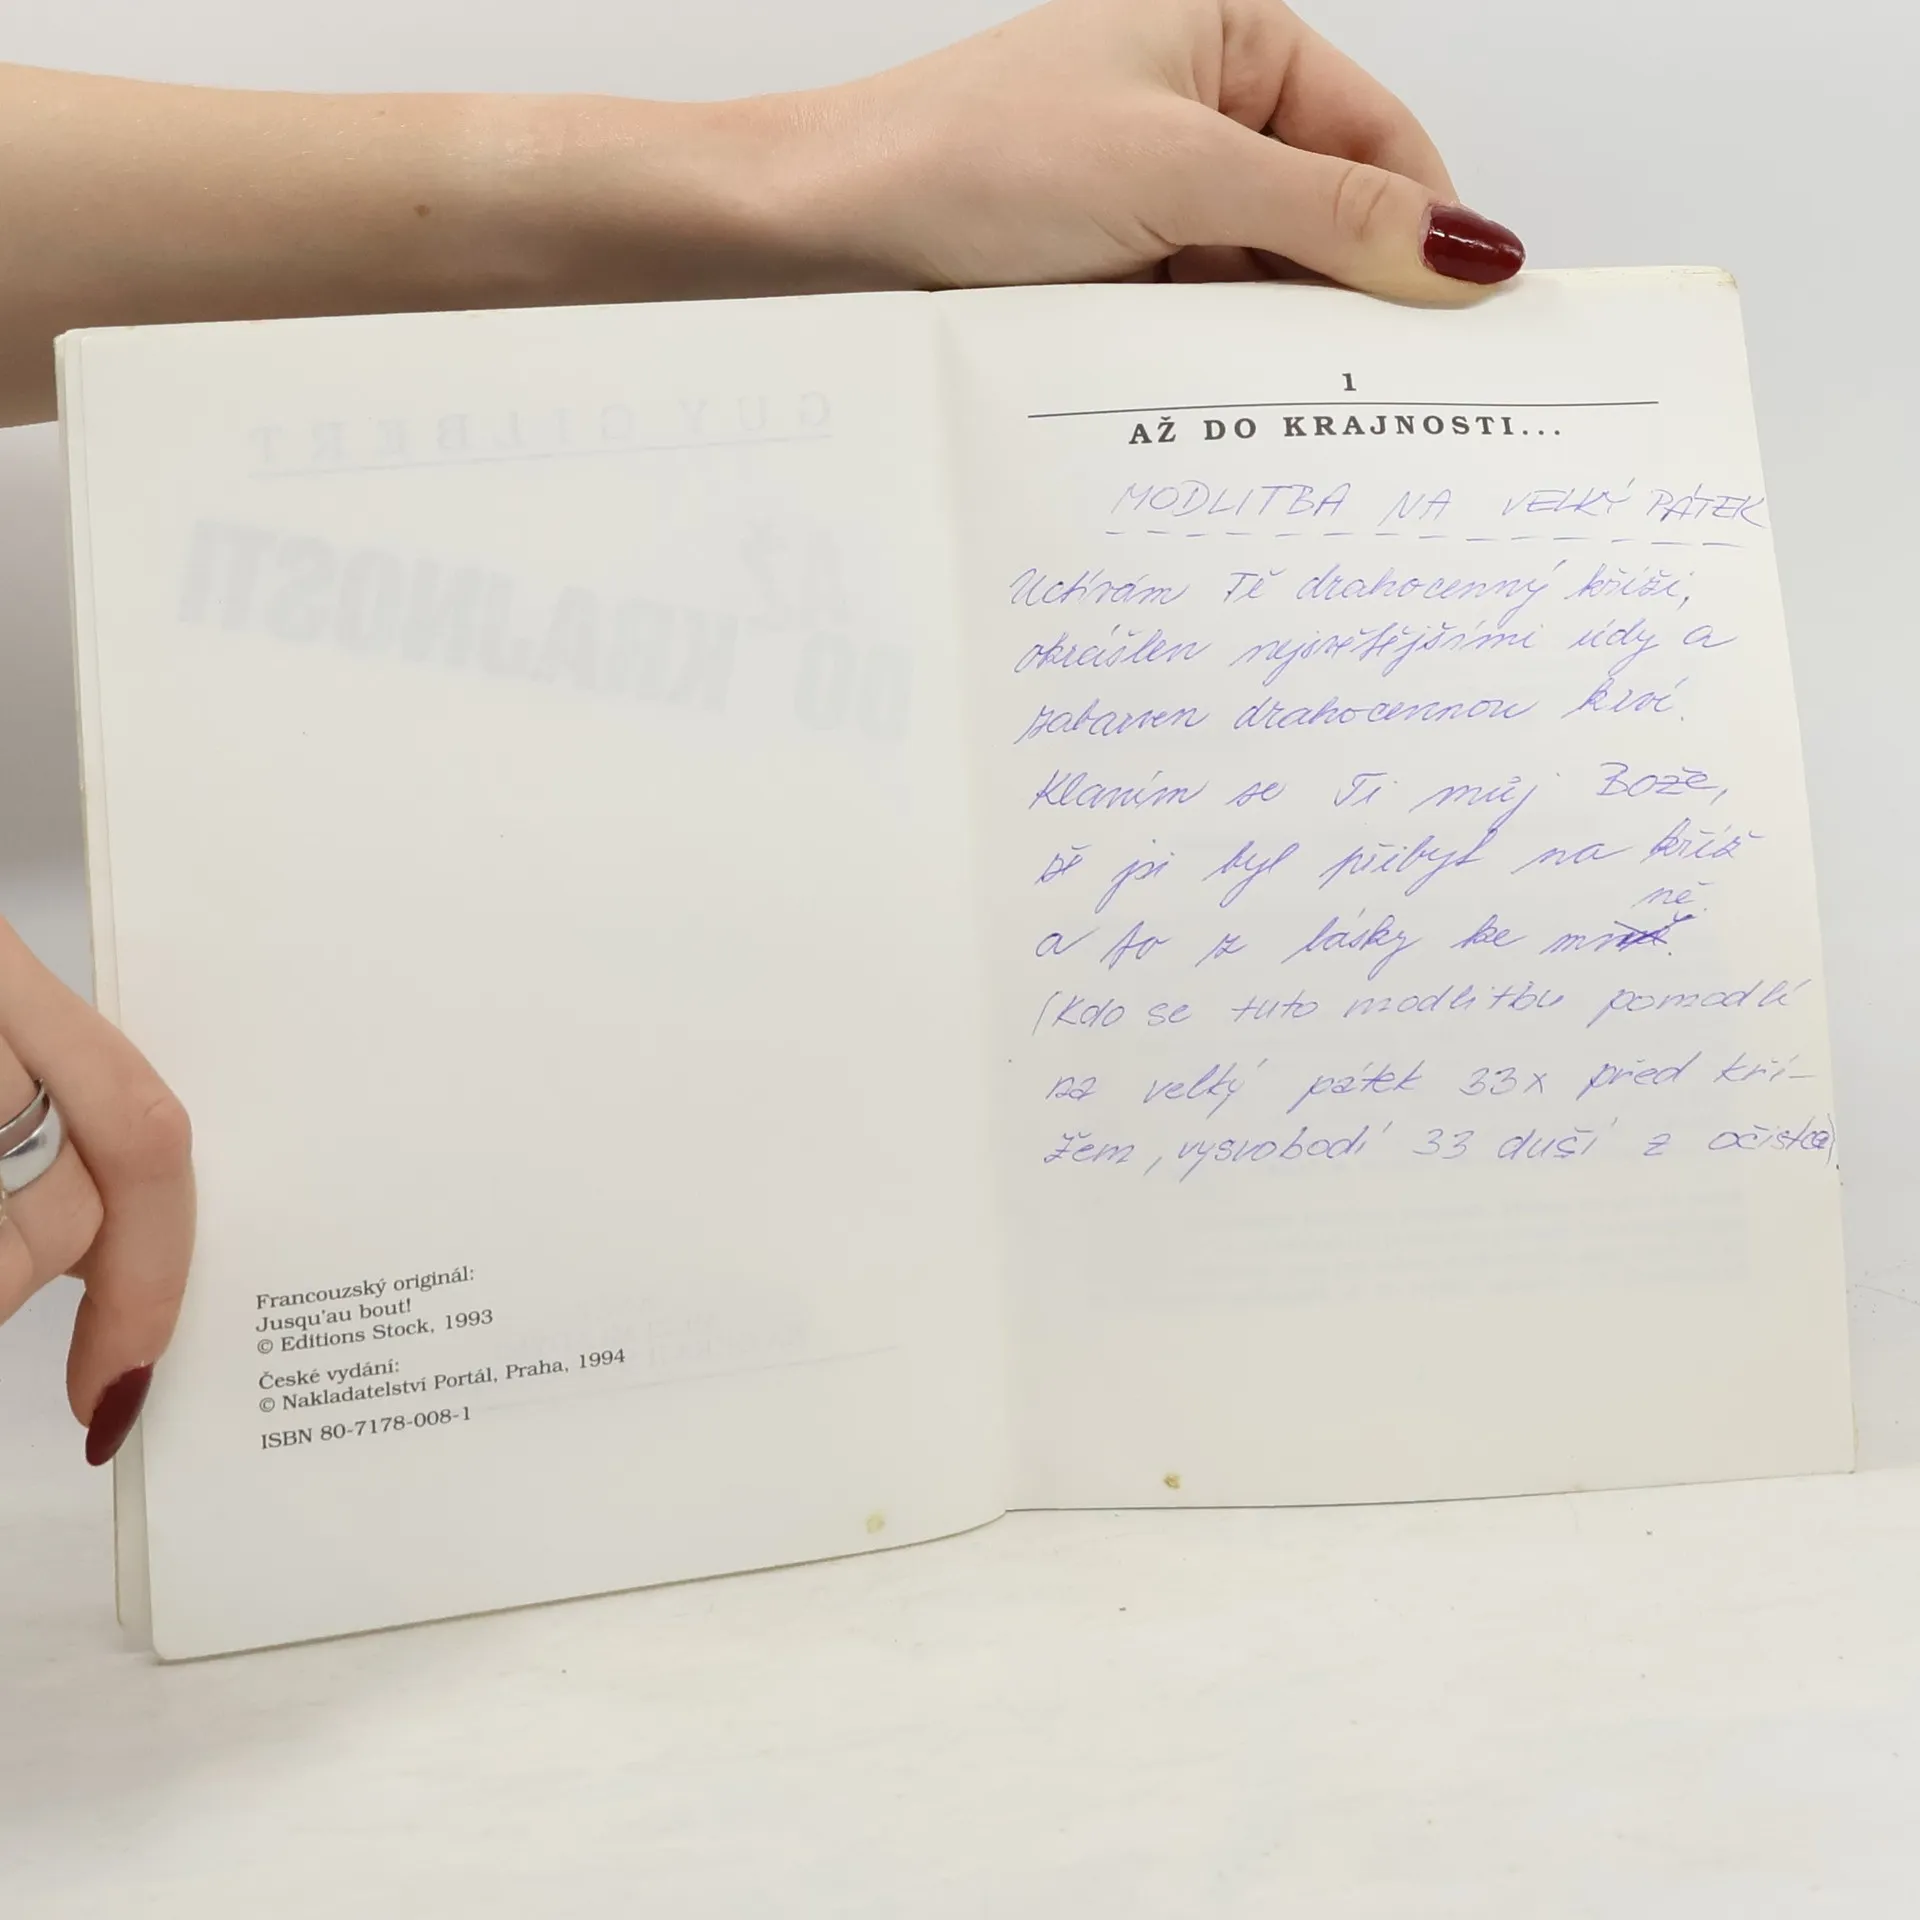 GUY GILBERT
AŽ
DO KRAJNOSTI
Francouzský originál:
Jusqu'au bout!
© Editions Stock, 1993
České vydání:
© Nakladatelství Portál, Praha, 1994
ISBN 80-7178-008-1
1
AŽ DO KRAJNOSTI...
MODLITBA NA VELKÝ PÁTEK
Uctívám Tě drahocenný kříži,
okrášlen nejsvětějšími údy a
zabarven drahocennou krví.
Klaním se Ti můj Bože,
že jsi byl přibyt na kříž
ně.
a to z lásky ke m
(Kdo se tuto modlitbu pomodlí
na velký pátek 33x před kří-
žem, vysvobodí 33 duší z očistce)